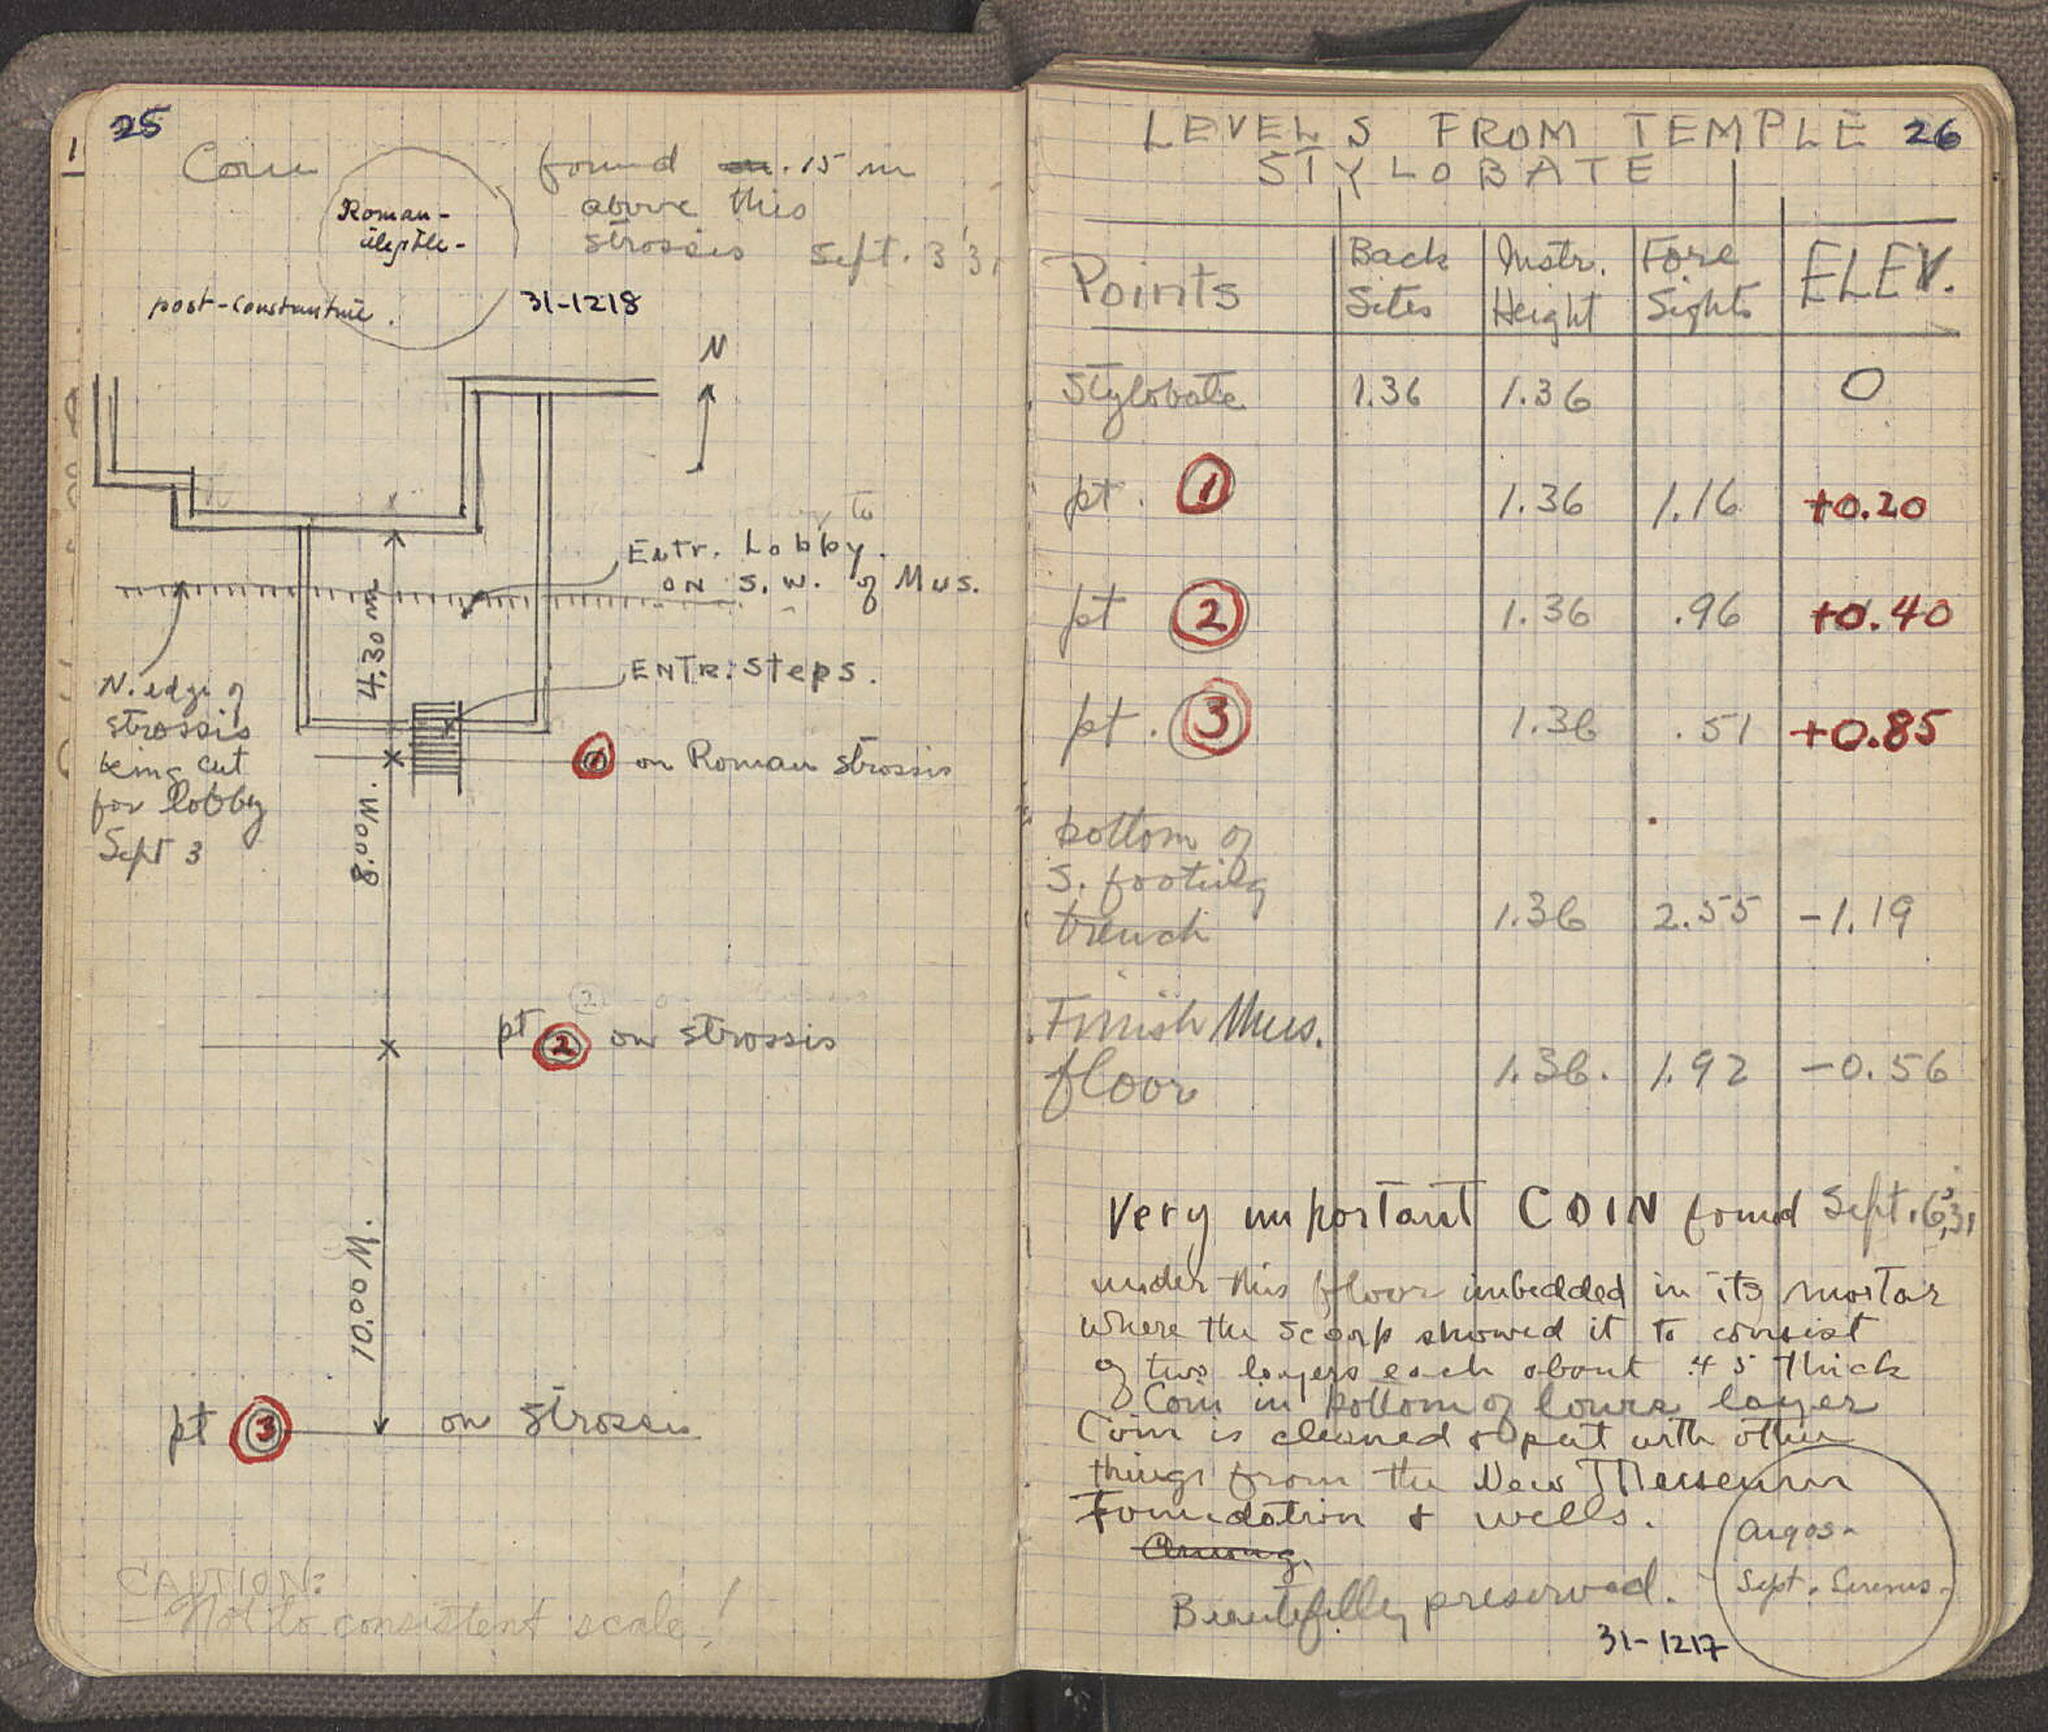 25
Coin
found .15 m
above this
strosis Sept. 3 '31
Roman-
post-Constantine.
31-1218
N
Entr. Lobby.
to
ON S.W. of Mus.
4.30 m
ENTR. Steps.
N. edge of
strossis
being cut
for lobby
Sept 3
1 on Roman strossis
8.00 M.
pt 2 on strossis
10.00 M.
pt 3 on strossis
CAUTION:
Not to consistent scale!
26
LEVELS FROM TEMPLE
STYLOBATE
Points Back Sites Instr. Height Fore Sights ELEV.
Stylobate 1.36 1.36 0
pt. 1 1.36 1.16 +0.20
pt 2 1.36 .96 +0.40
pt. 3 1.36 .51 +0.85
bottom of
S. footing
trench 1.36 2.55 -1.19
Finish Mus.
floor 1.36. 1.92 -0.56
Very important COIN found Sept. 6, 31
under this floor imbedded in its mortar
where the scarp showed it to consist
of two layers each about .45 thick
Coin in bottom of lower layer
Coin is cleaned & put with other
things from the New Museum
Foundation & wells.
Among
Beautifully preserved.
Argos-
Sept. Severus-
31-1217